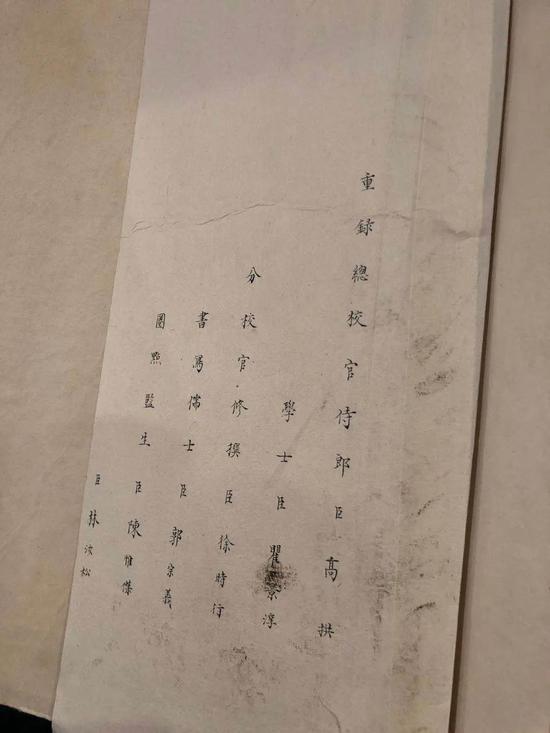 重録總校官侍郎臣高拱
學士臣瞿景淳
分校官修撰臣徐時行
書寫儒士臣郭宗義
圈㸃監生臣陳惟傑
臣林汝松